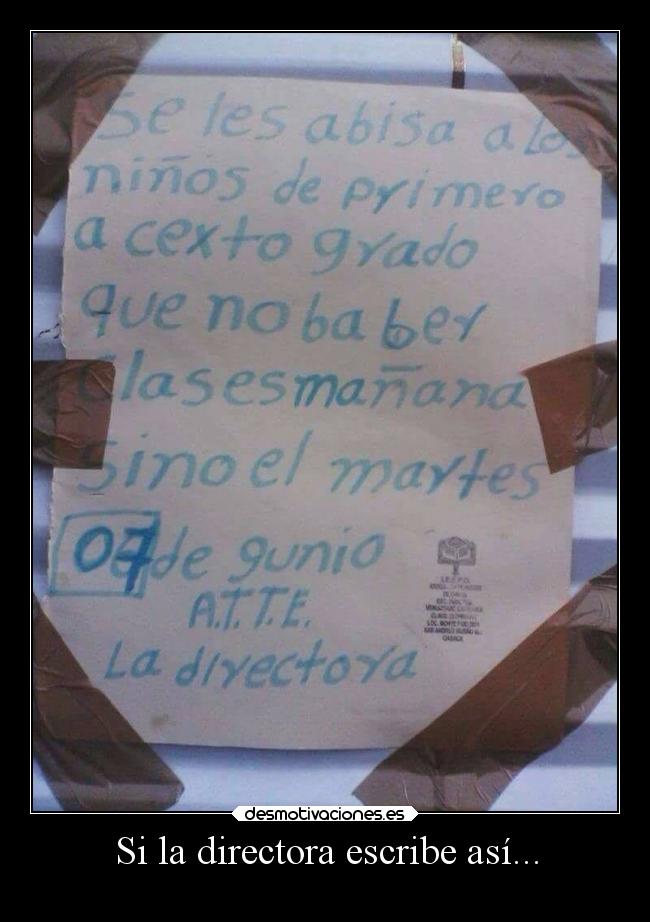 Se les abisa a los
niños de primero
a cexto grado
que no ba ber
Clases mañana
Sino el martes
07 de gunio
A.T.T.E.
La directora
desmotivaciones.es
Si la directora escribe así...